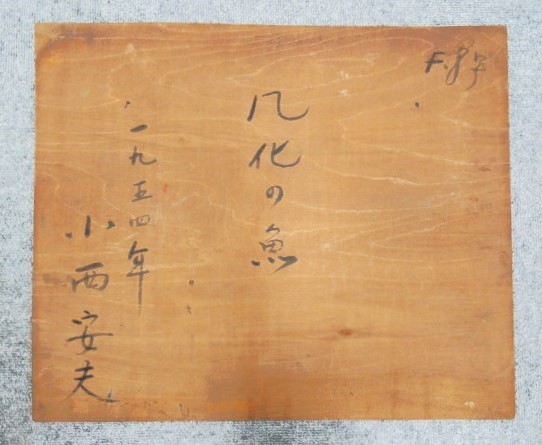 F.8号
几化の魚
一九五四年
小西安夫